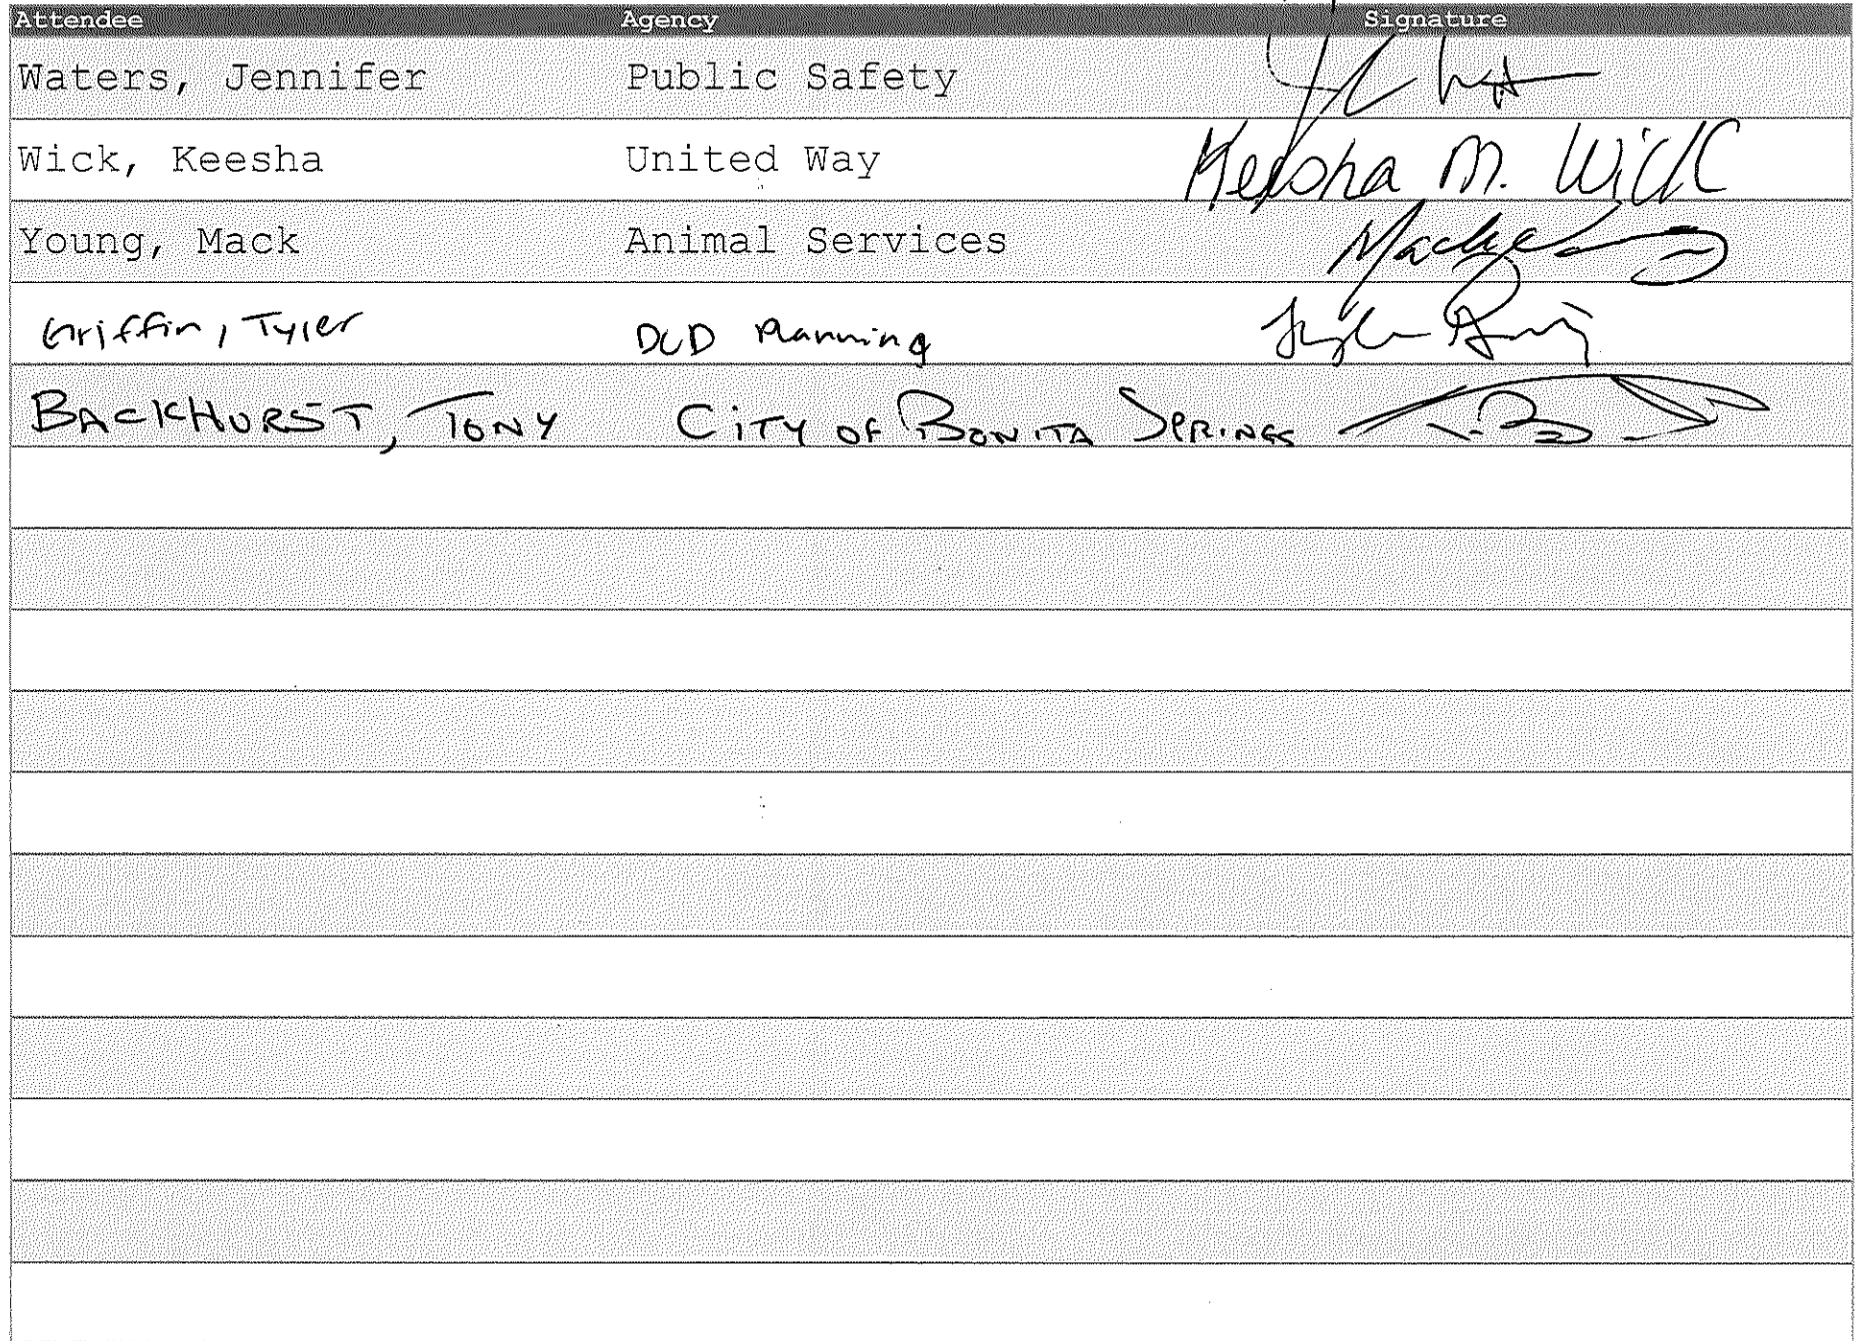 Attendee Agency Signature
Waters, Jennifer Public Safety
Wick, Keesha United Way Keesha M. Wick
Young, Mack Animal Services
Griffin, Tyler DCD Planning
BACKHURST, TONY CITY OF BONITA SPRINGS